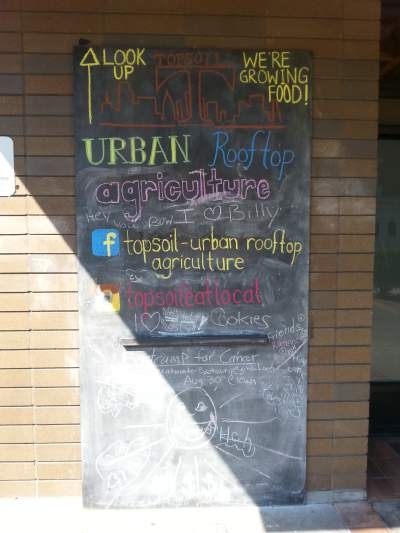 LOOK UP
TOPSOIL
WE'RE GROWING FOOD!
URBAN Rooftop
agriculture
Hey
I ♡ Billy
f topsoil-urban rooftop
agriculture
topsoileatlocal
I ♡ Cookies
Friends
for Cancer
Aug 30